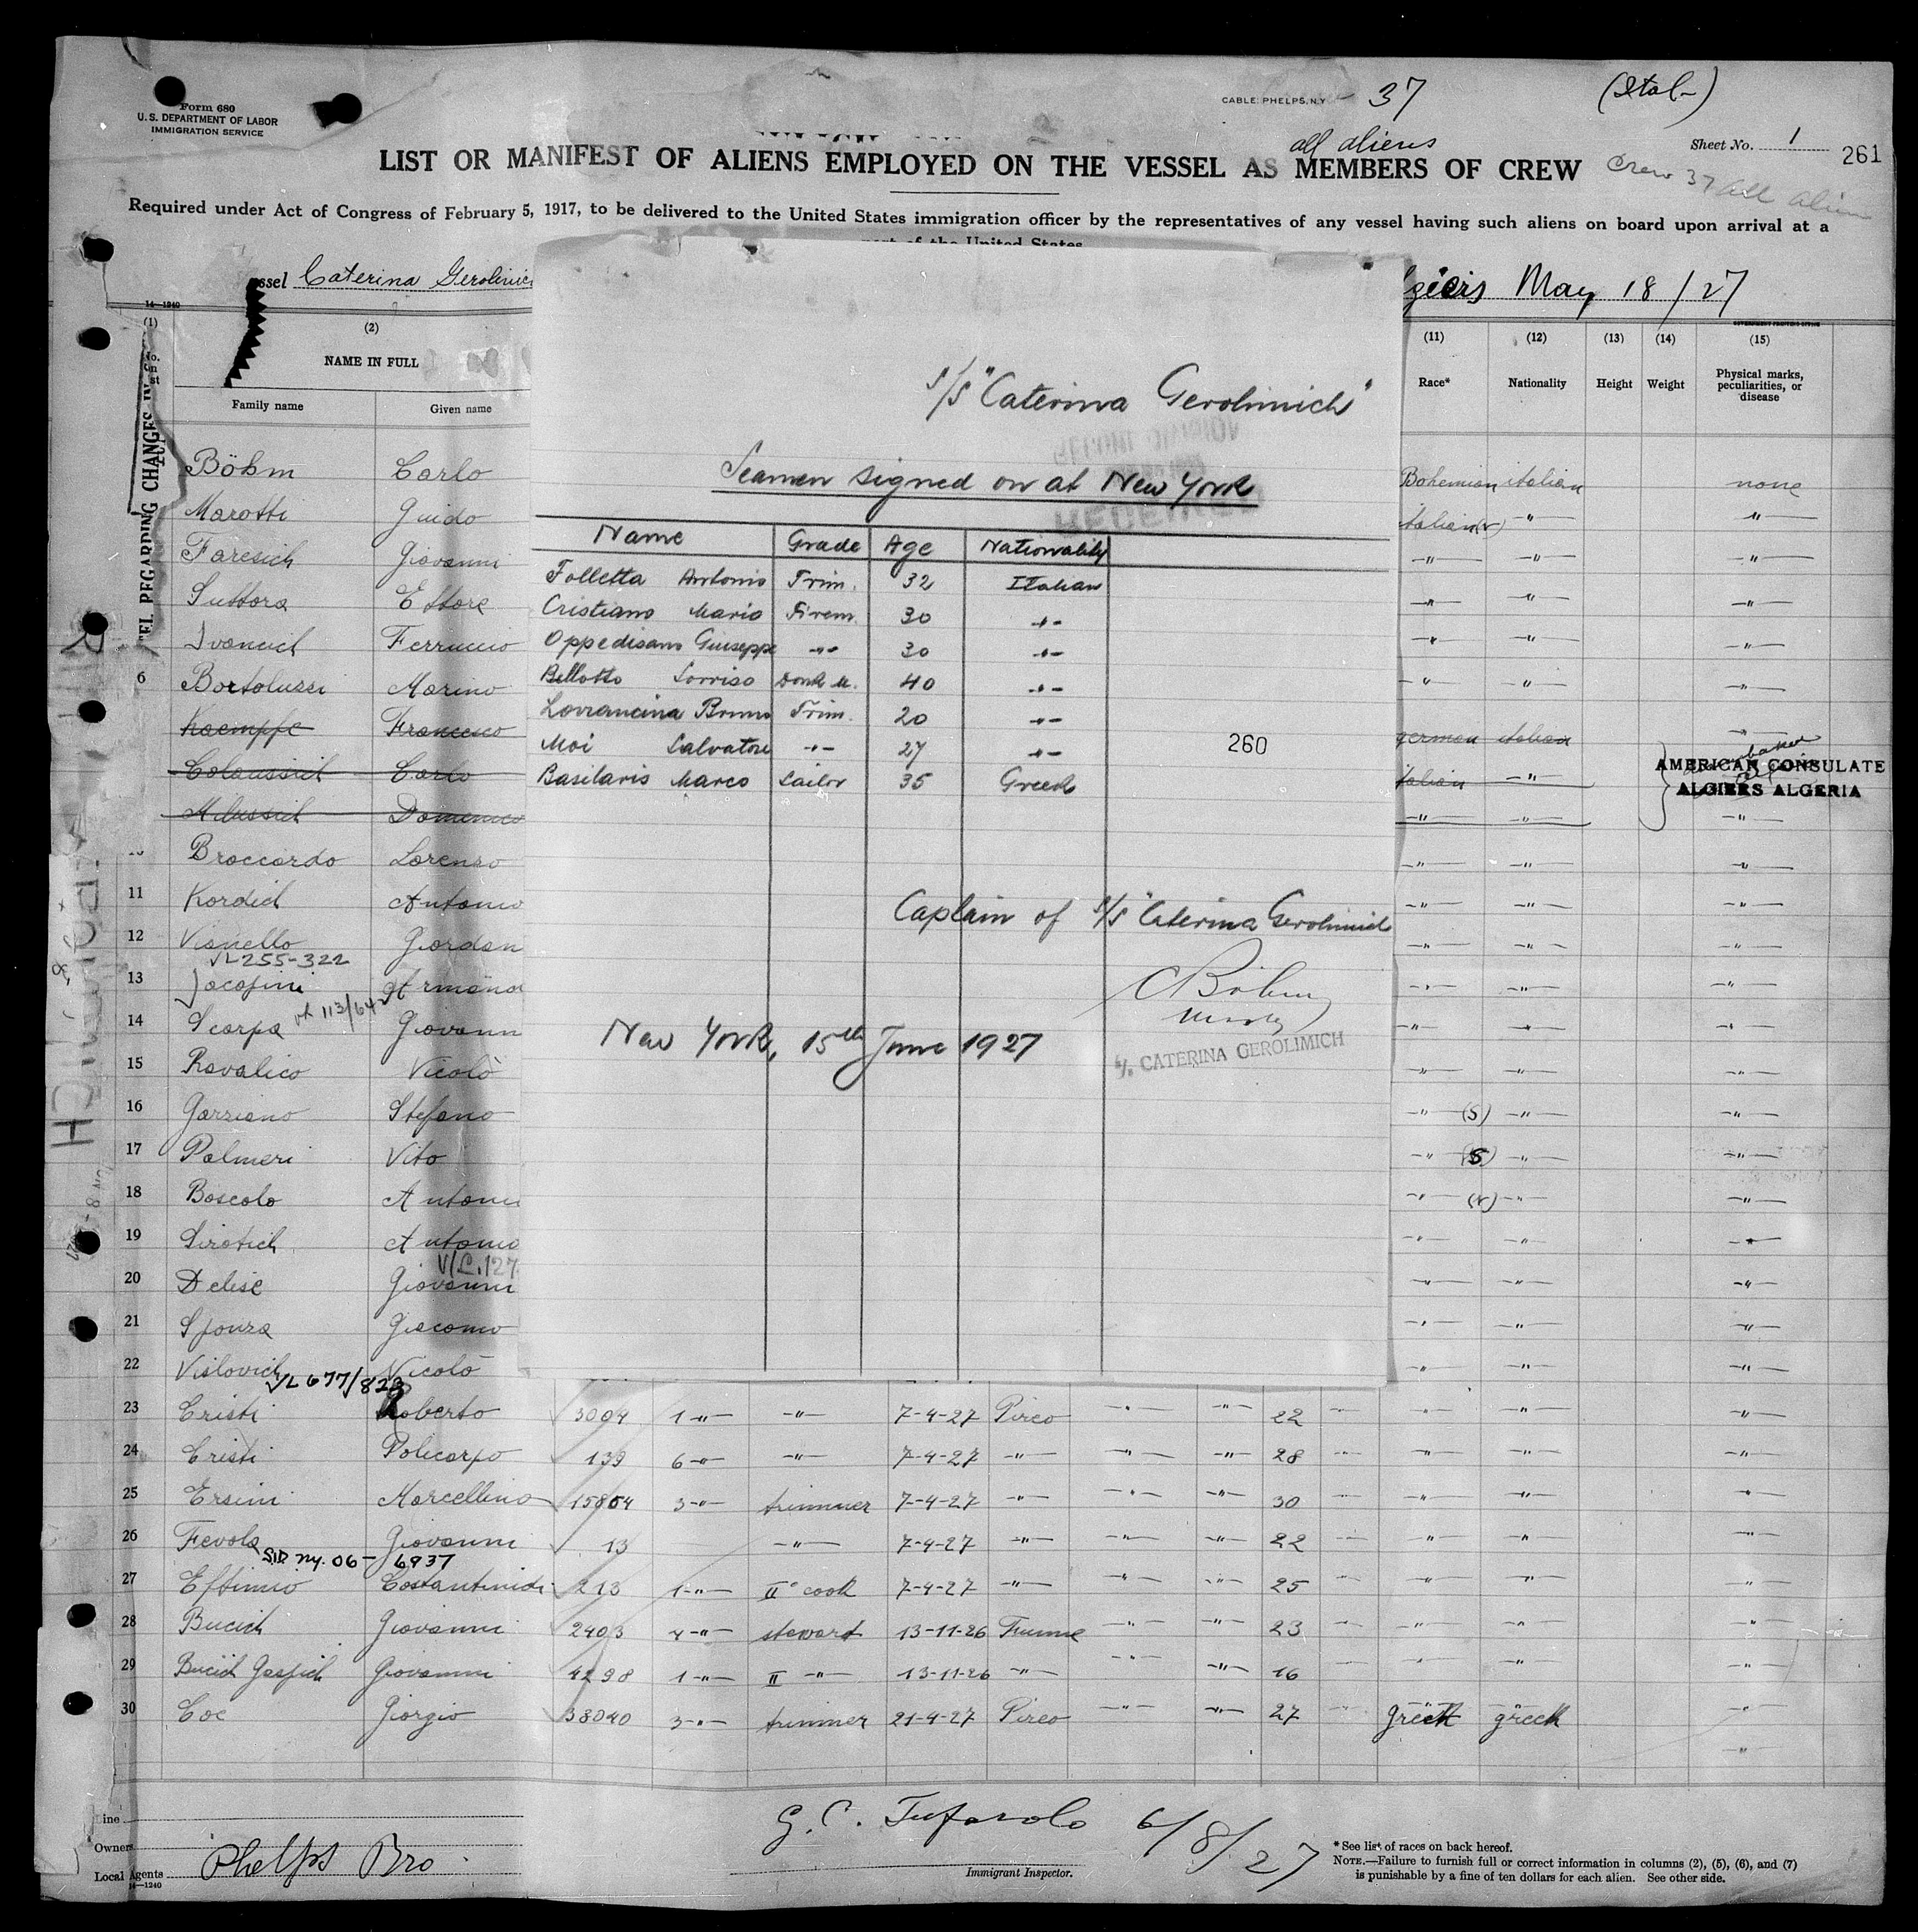 Form 680
U. S. DEPARTMENT OF LABOR
IMMIGRATION SERVICE
CABLE: PHELPS, N.Y. 37 (Ital-)
all aliens
Sheet No. 1 261
LIST OR MANIFEST OF ALIENS EMPLOYED ON THE VESSEL AS MEMBERS OF CREW
Crew 37 all alien
Required under Act of Congress of February 5, 1917, to be delivered to the United States immigration officer by the representatives of any vessel having such aliens on board upon arrival at a
port of the United States
ssel Caterina Gerolimic
giers May 18/27
14—1240
(1) (2) (11) (12) (13) (14) (15)
No. on list NAME IN FULL Race* Nationality Height Weight Physical marks, peculiarities, or disease
Family name Given name
REGARDING CHANGES IN
Böhm Carlo Bohemian italian none
Marotti Guido italian (N) -"- -"-
Faresich Giovanni -"- -"- -"-
Suttora Ettore -"- -"- -"-
Ivancich Ferruccio -"- -"- -"-
6 Bortolussi Marino -"- -"- -"-
Kaempfe Francesco german italian -"-
Colaussich Carlo italian -"-
AMERICAN CONSULATE
ALGIERS ALGERIA
Milussich Domenico -"- -"- -"-
Broccardo Lorenzo -"- -"- -"-
11 Kordich Antonio -"- -"- -"-
12 Vianello Giordan -"- -"- -"-
VL 255-322
13 Jacofini Armand -"- -"- -"-
VL 113/642
14 Scarpa Giovann -"- -"- -"-
15 Ravalico Nicolò -"- -"- -"-
16 Garziano Stefano -"- (S) -"- -"-
17 Palmeri Vito -"- (S) -"- -"-
18 Boscolo Antoni -"- (N) -"- -"-
19 Sirotich Antonio -"- -"- -"-
V/L.127
20 Delise Giovanni -"- -"- -"-
21 Sponza Giacomo -"- -"- -"-
22 Vislovich Nicolò -"- -"- -"-
VL 677/823
23 Cristi Roberto 3004 1-"- -"- 7-4-27 Pireo -"- -"- 22 -"- -"- -"- -"-
24 Cristi Policarpo 139 6-"- -"- 7-4-27 -"- -"- -"- 28 -"- -"- -"- -"-
25 Ersini Marcellino 15804 3-"- trimmer 7-4-27 -"- -"- -"- 30 -"- -"- -"- -"-
26 Fevola Giovanni 13 -"- 7-4-27 -"- -"- -"- 22 -"- -"- -"- -"-
SID ny. 06- 6937
27 Eftimio Costantinidi 213 1-"- II° cook 7-4-27 -"- -"- -"- 25 -"- -"- -"- -"-
28 Bucich Giovanni 2403 4-"- steward 13-11-26 Fiume -"- -"- 23 -"- -"- -"- -"-
29 Bucich Gasfich Giovanni 4298 1-"- II -"- 13-11-26 -"- -"- -"- 16 -"- -"- -"-
30 Coc Giorgio 38040 3-"- trimmer 21-4-27 Pireo -"- -"- 27 -"- greek greek -"-
-"-
S/S "Caterina Gerolimich"
Seamen signed on at New York
RECEIVED
Name Grade Age Nationality
Folletta Antonio Trim. 32 Italian
Cristiano Mario Firem. 30 -"-
Oppedisano Giuseppe -"- 30 -"-
Bellotto Lorviso Donk M. 40 -"-
Lovrancina Bruno Trim. 20 -"-
Moi Salvatore -"- 27 -"-
260
Basilaris Marco Sailor 35 Greek
Captain of S/S "Caterina Gerolimich
C Böhm
New York, 15th June 1927
S/S. CATERINA GEROLIMICH
G. C. Tufarolo 6/8/27
Immigrant Inspector.
Line
Owners
Local Agents Phelps Bro.
14—1240
* See list of races on back hereof.
NOTE.—Failure to furnish full or correct information in columns (2), (5), (6), and (7)
is punishable by a fine of ten dollars for each alien. See other side.